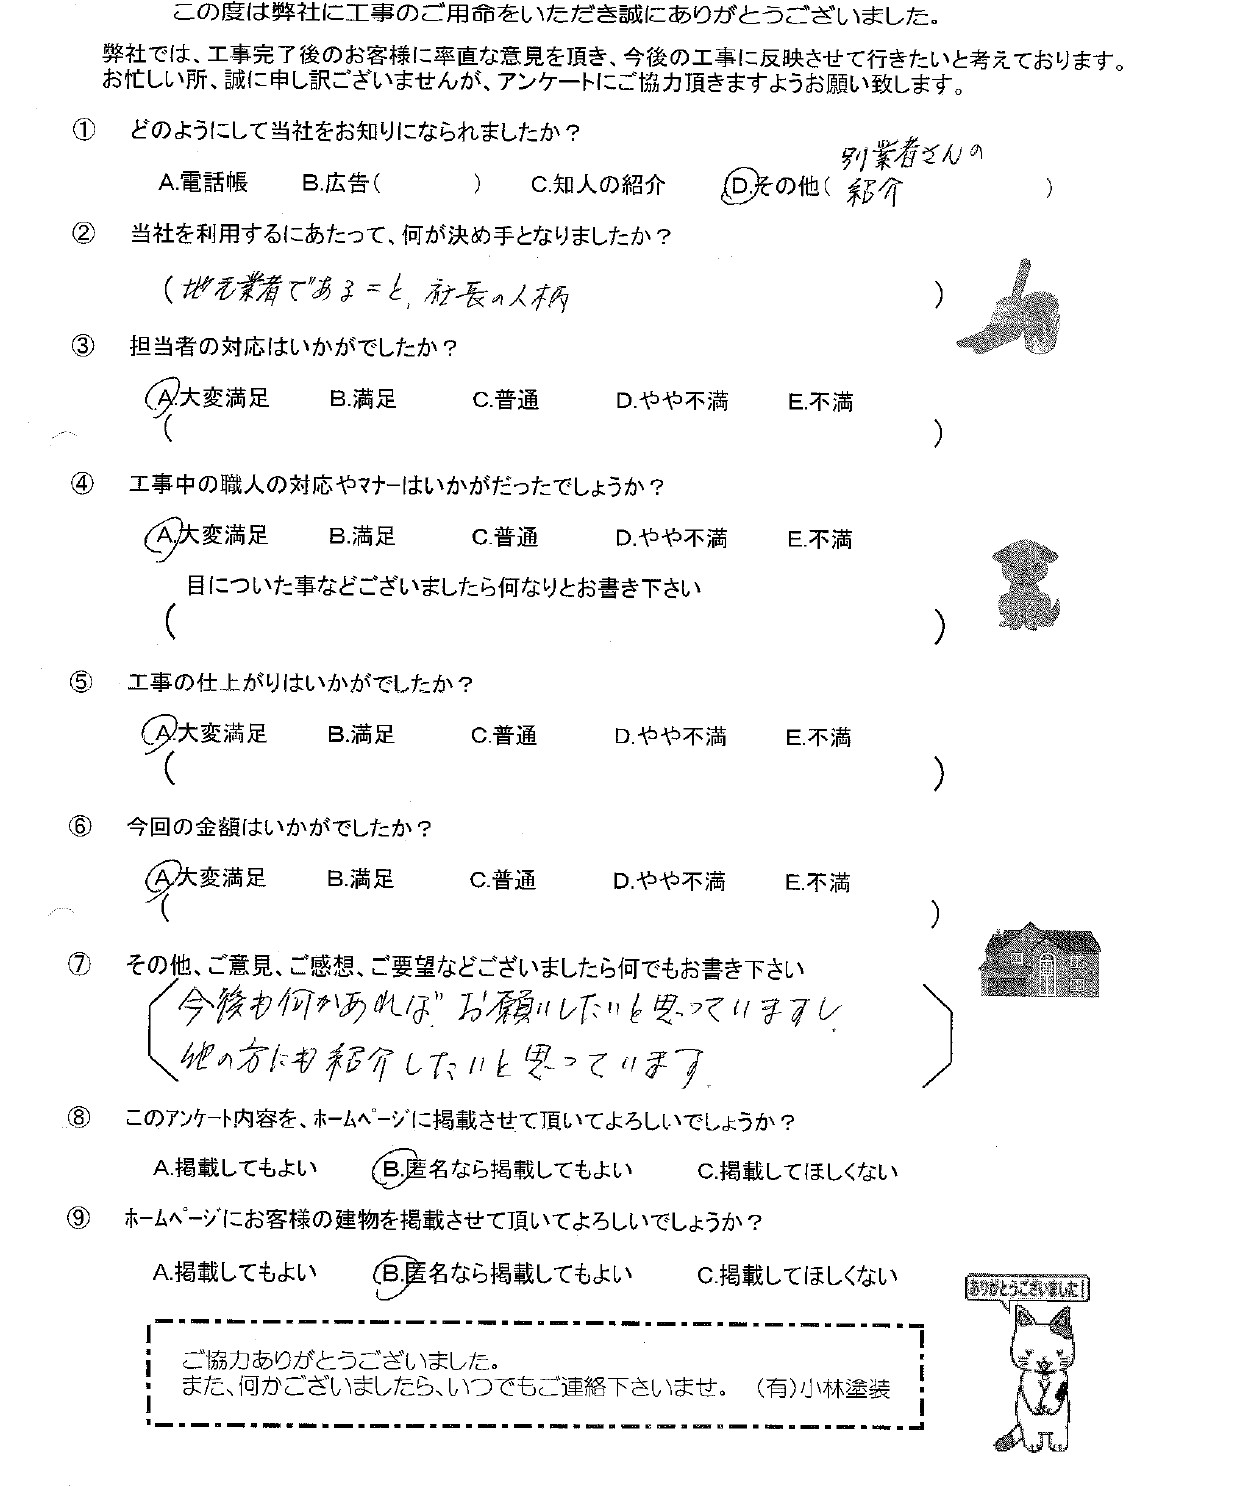 この度は弊社に工事のご用命をいただき誠にありがとうございました。
弊社では、工事完了後のお客様に率直な意見を頂き、今後の工事に反映させて行きたいと考えております。
お忙しい所、誠に申し訳ございませんが、アンケートにご協力頂きますようお願い致します。
① どのようにして当社をお知りになられましたか？
別業者さんの
A.電話帳 B.広告( ) C.知人の紹介 D.その他( 紹介 )
② 当社を利用するにあたって、何が決め手となりましたか？
(地元業者であること、社長の人柄 )
③ 担当者の対応はいかがでしたか？
A.大変満足 B.満足 C.普通 D.やや不満 E.不満
( )
④ 工事中の職人の対応やマナーはいかがだったでしょうか？
A.大変満足 B.満足 C.普通 D.やや不満 E.不満
目についた事などございましたら何なりとお書き下さい
( )
⑤ 工事の仕上がりはいかがでしたか？
A.大変満足 B.満足 C.普通 D.やや不満 E.不満
( )
⑥ 今回の金額はいかがでしたか？
A.大変満足 B.満足 C.普通 D.やや不満 E.不満
( )
⑦ その他、ご意見、ご感想、ご要望などございましたら何でもお書き下さい
今後も何かあれば、お願いしたいと思っていますし、
他の方にも紹介したいと思っています。
⑧ このアンケート内容を、ホームページに掲載させて頂いてよろしいでしょうか？
A.掲載してもよい B.匿名なら掲載してもよい C.掲載してほしくない
⑨ ホームページにお客様の建物を掲載させて頂いてよろしいでしょうか？
A.掲載してもよい B.匿名なら掲載してもよい C.掲載してほしくない
ありがとうございました！
ご協力ありがとうございました。
また、何かございましたら、いつでもご連絡下さいませ。 (有)小林塗装